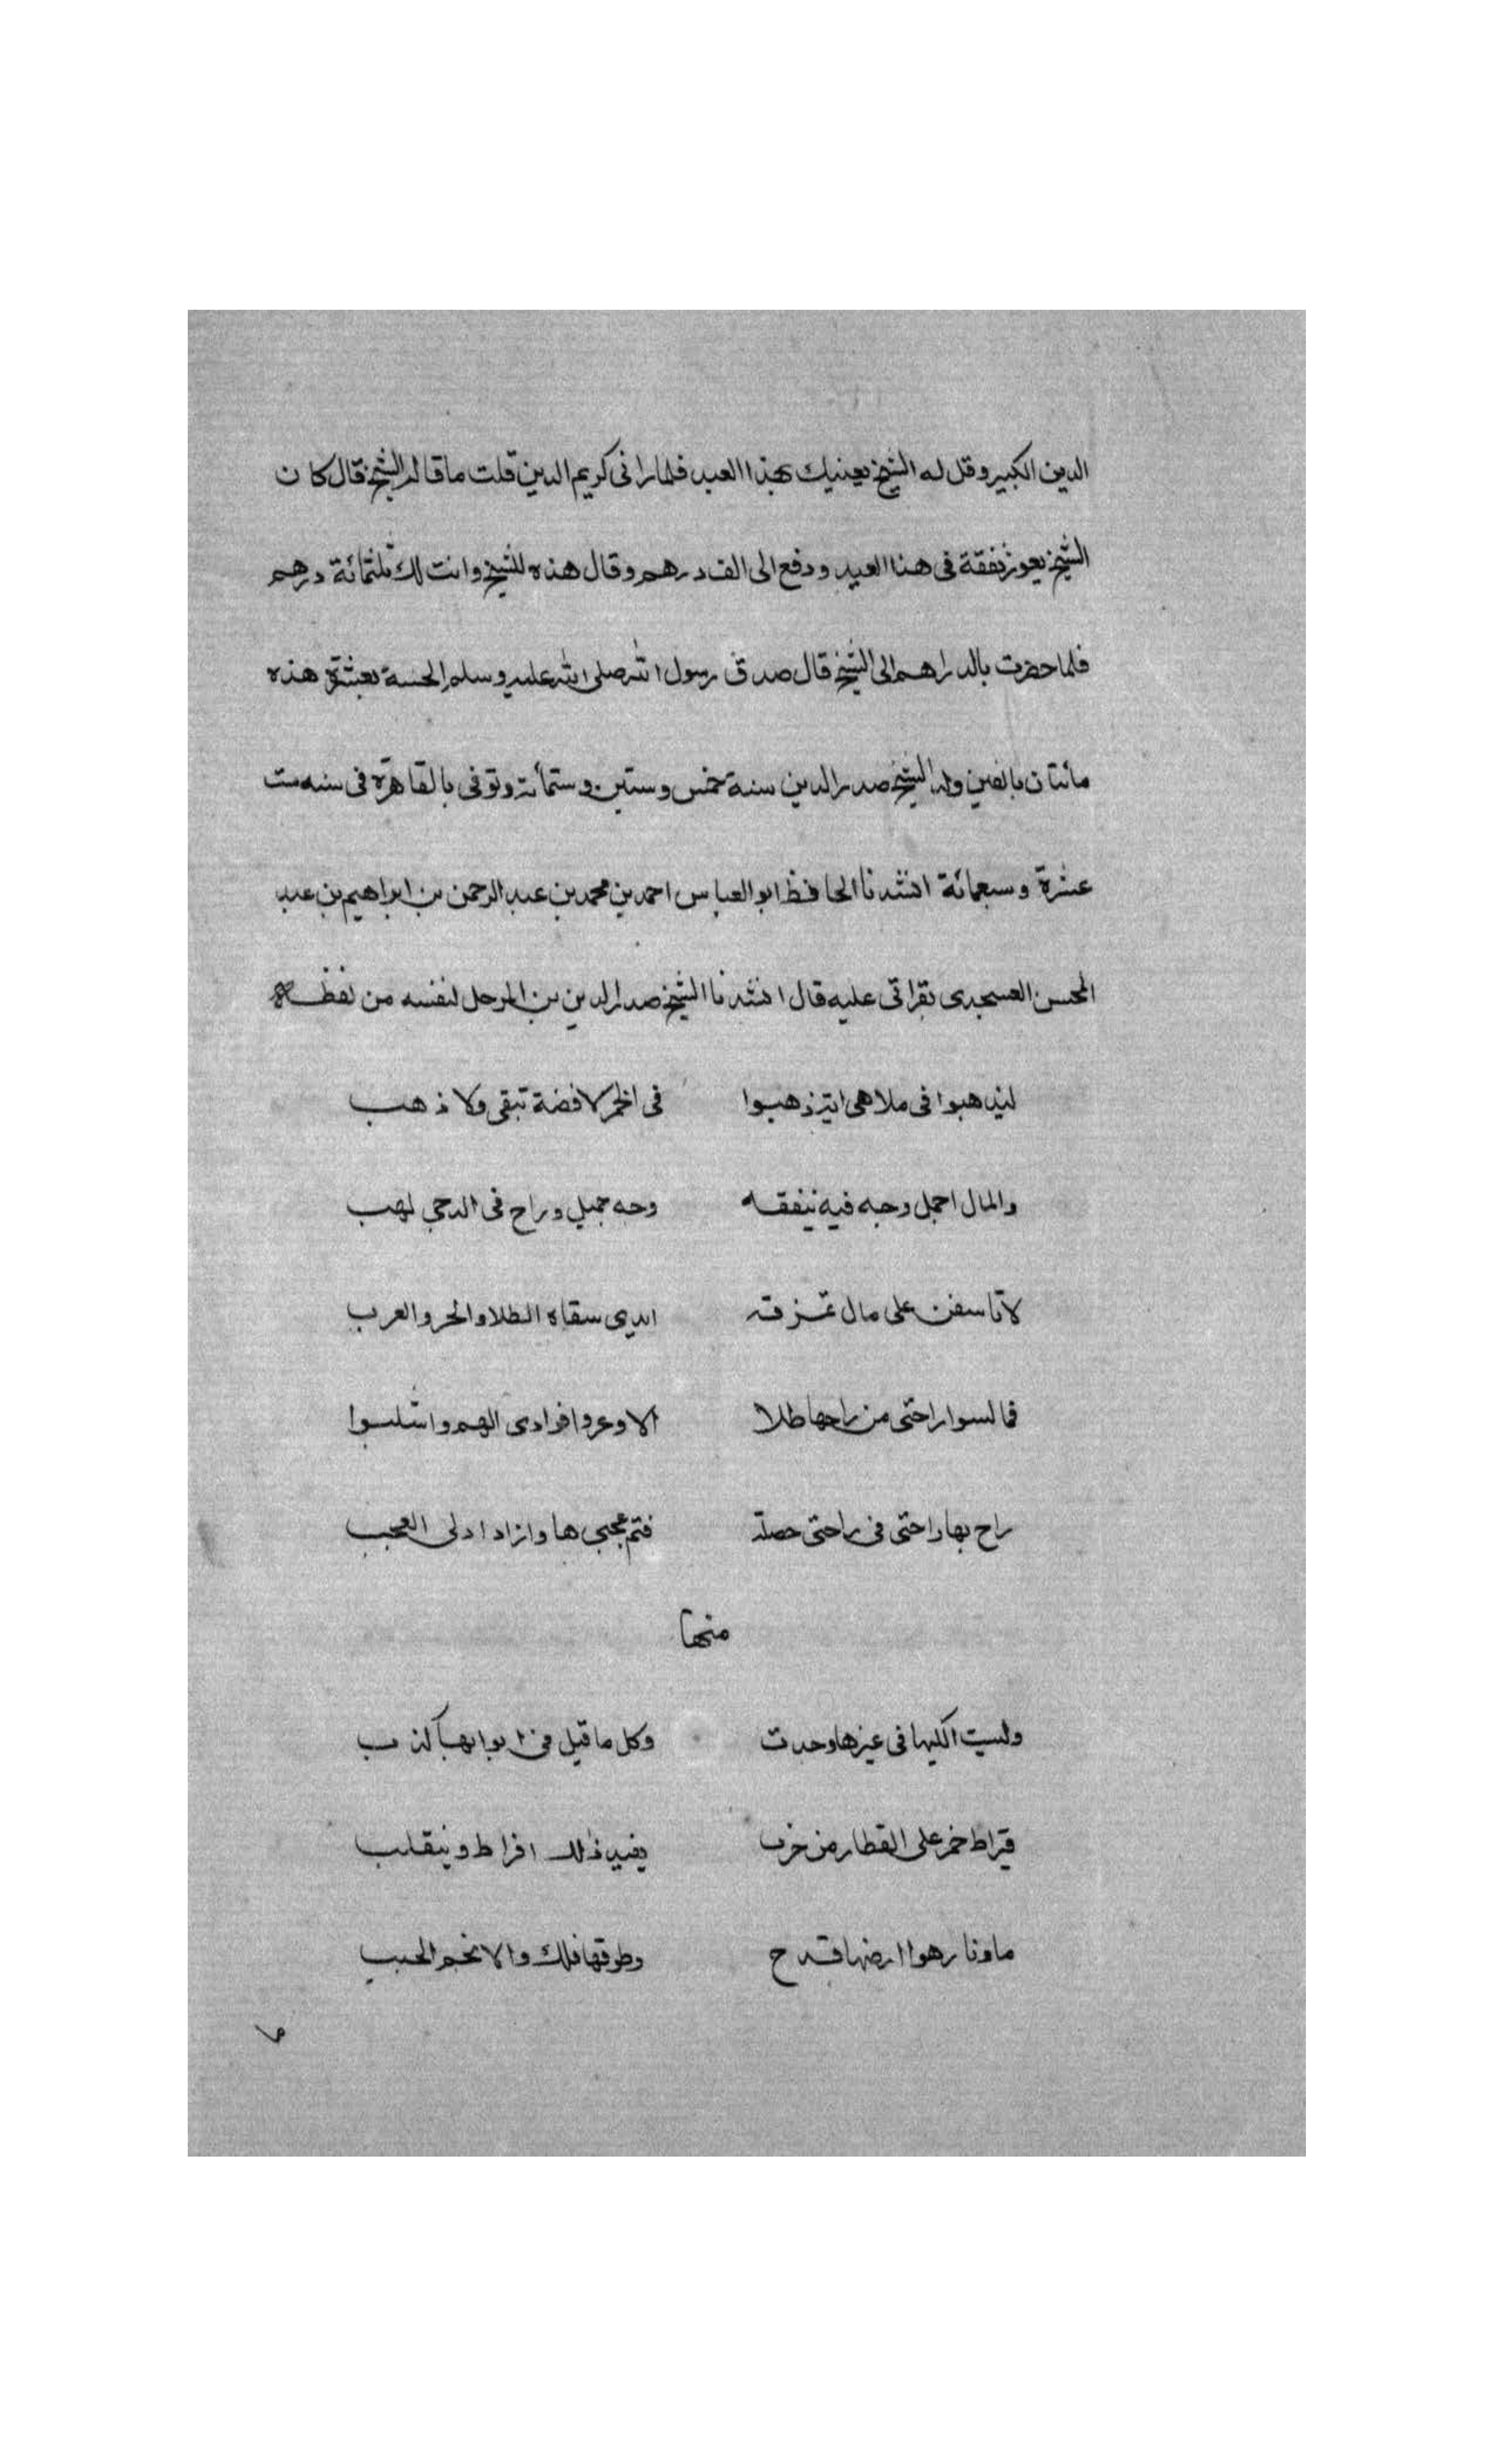 الدين الكبير وقل له الشيخ يهنيك بهذا العيد فلما رانى كريم الدين قلت ما قاله الشيخ قال كان
الشيخ يعوز نفقة فى هذا العيد ودفع الى الف درهم وقال هذه للشيخ وانت لك ثلثمائة درهم
فلما حضرت بالدراهم الى الشيخ قال صدق رسول الله صلى الله عليه وسلم الحسنة بعشرة هذه
مائتان بالفين ولد الشيخ صدر الدين سنة خمس وستين وستمأته وتوفى بالقاهرة فى سنه ست
عشرة وسبعمائة انشدنا الحافظ ابو العباس احمد بن محمد بن عبد الرحمن بن ابراهيم بن عبد
المحسن العسجدى بقراتى عليه قال انشدنا الشيخ صدر الدين بن المرحل لنفسه من لفظه
ليذهبوا فى ملاهى ايتر ذهبوا فى الخمر لا فضة تبقى ولا ذهب
والمال اجمل وجه فيه ينفقه وجه جميل وراح فى الدجى لهب
لا تاسفن على مال تمزقه ايدى سقاة الطلا والخر والعرب
فما لسوا راحتى من راحها طلا الا وعروا فوادى الهم واستلبوا
راح بها راحتى فى راحتى حصلت فتم عجبى ها وازداد لى العجب
منها
وليست الكيميا فى غيرها وجدت وكل ما قيل فى ابوابها كذب
قيراط خمر على القنطار من خرب يفيد ذلك افراط وينقلب
ما ونار هوا ارضها قدح وطوقها فلك والانجم الحبب